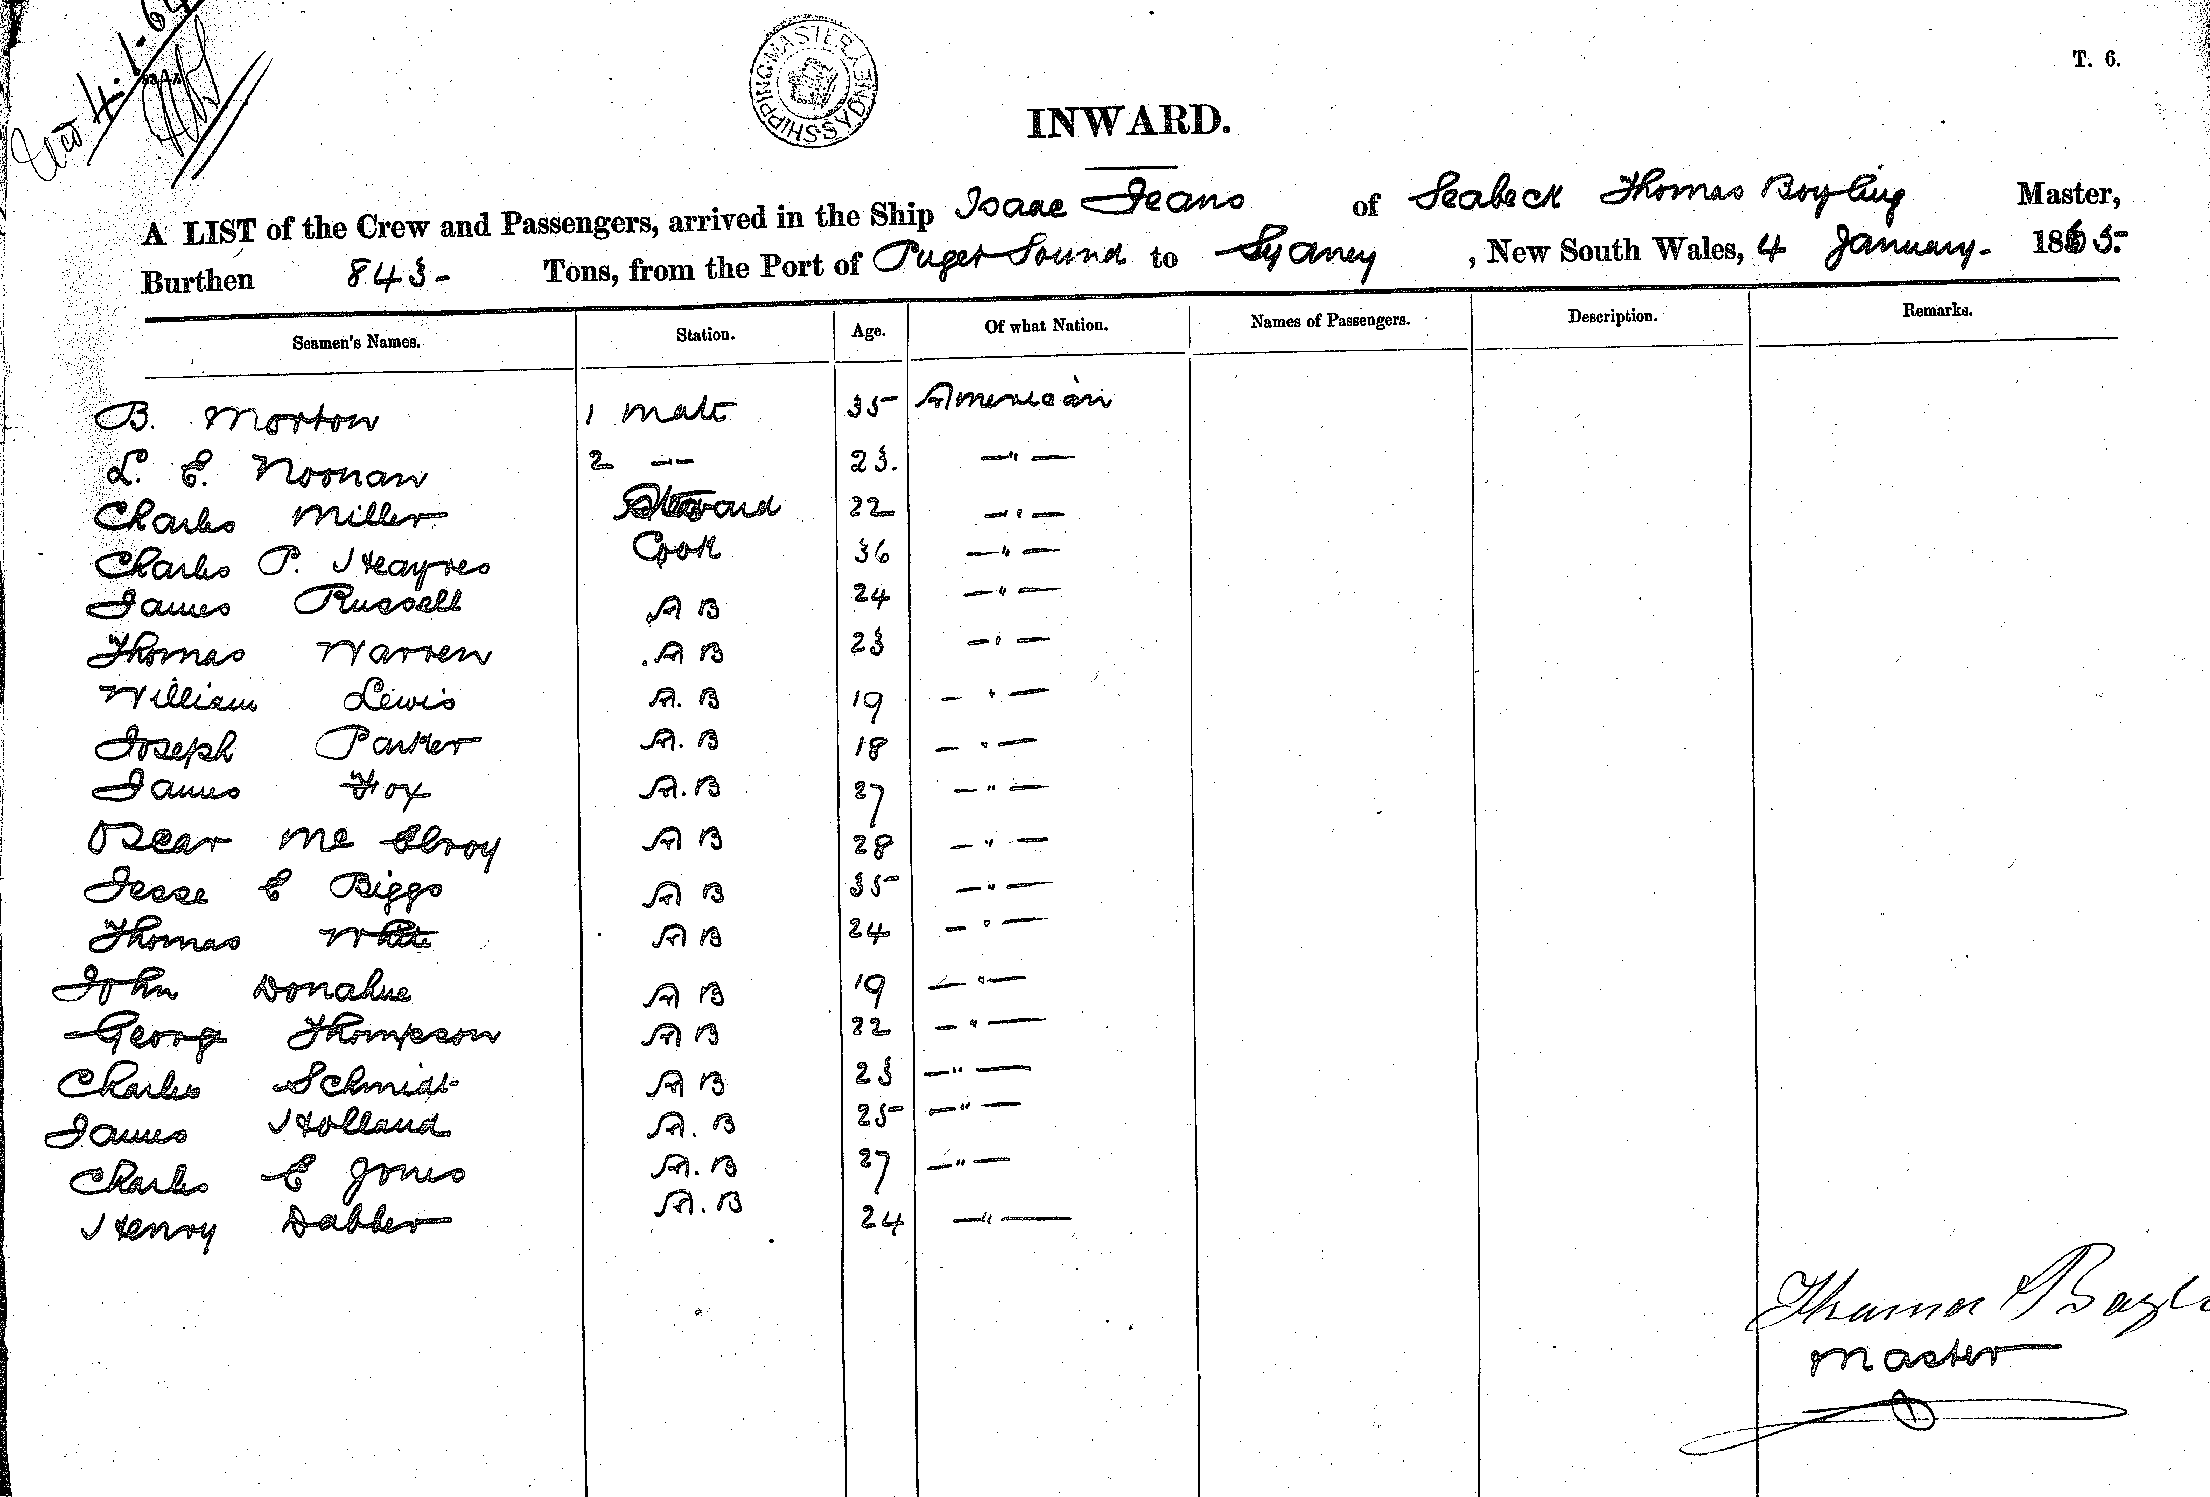 4.1.64
SHIPPING MASTER SYDNEY
T. 6.
INWARD.
A LIST of the Crew and Passengers, arrived in the Ship Isaac Jeans of Seabeck Thomas Boyling Master,
Burthen 843 - Tons, from the Port of Puget Sound to Sydney , New South Wales, 4 January - 1865
Seamen's Names. Station. Age. Of what Nation. Names of Passengers. Description. Remarks.
B. Morton 1 Mate 35 American
L. E. Noonan 2 — 23. — " —
Charles Miller Steward 22 — " —
Charles P. Heayres Cook 36 — " —
James Russell A B 24 — " —
Thomas Warren A B 23 — " —
William Lewis A. B 19 — " —
Joseph Parker A. B 18 — " —
James Fox A. B 27 — " —
Oscar Mc Elroy A B 28 — " —
Jesse E Biggs A B 35 — " —
Thomas White A B 24 — " —
John Donahue A B 19 — " —
Georg Thompson A B 22 — " —
Charles Schmidt A B 23 — " —
James Holland A. B 25 — " —
Charles E Jones A. B 27 — " —
Henry Dabber A. B 24 — " —
Thomas
Master